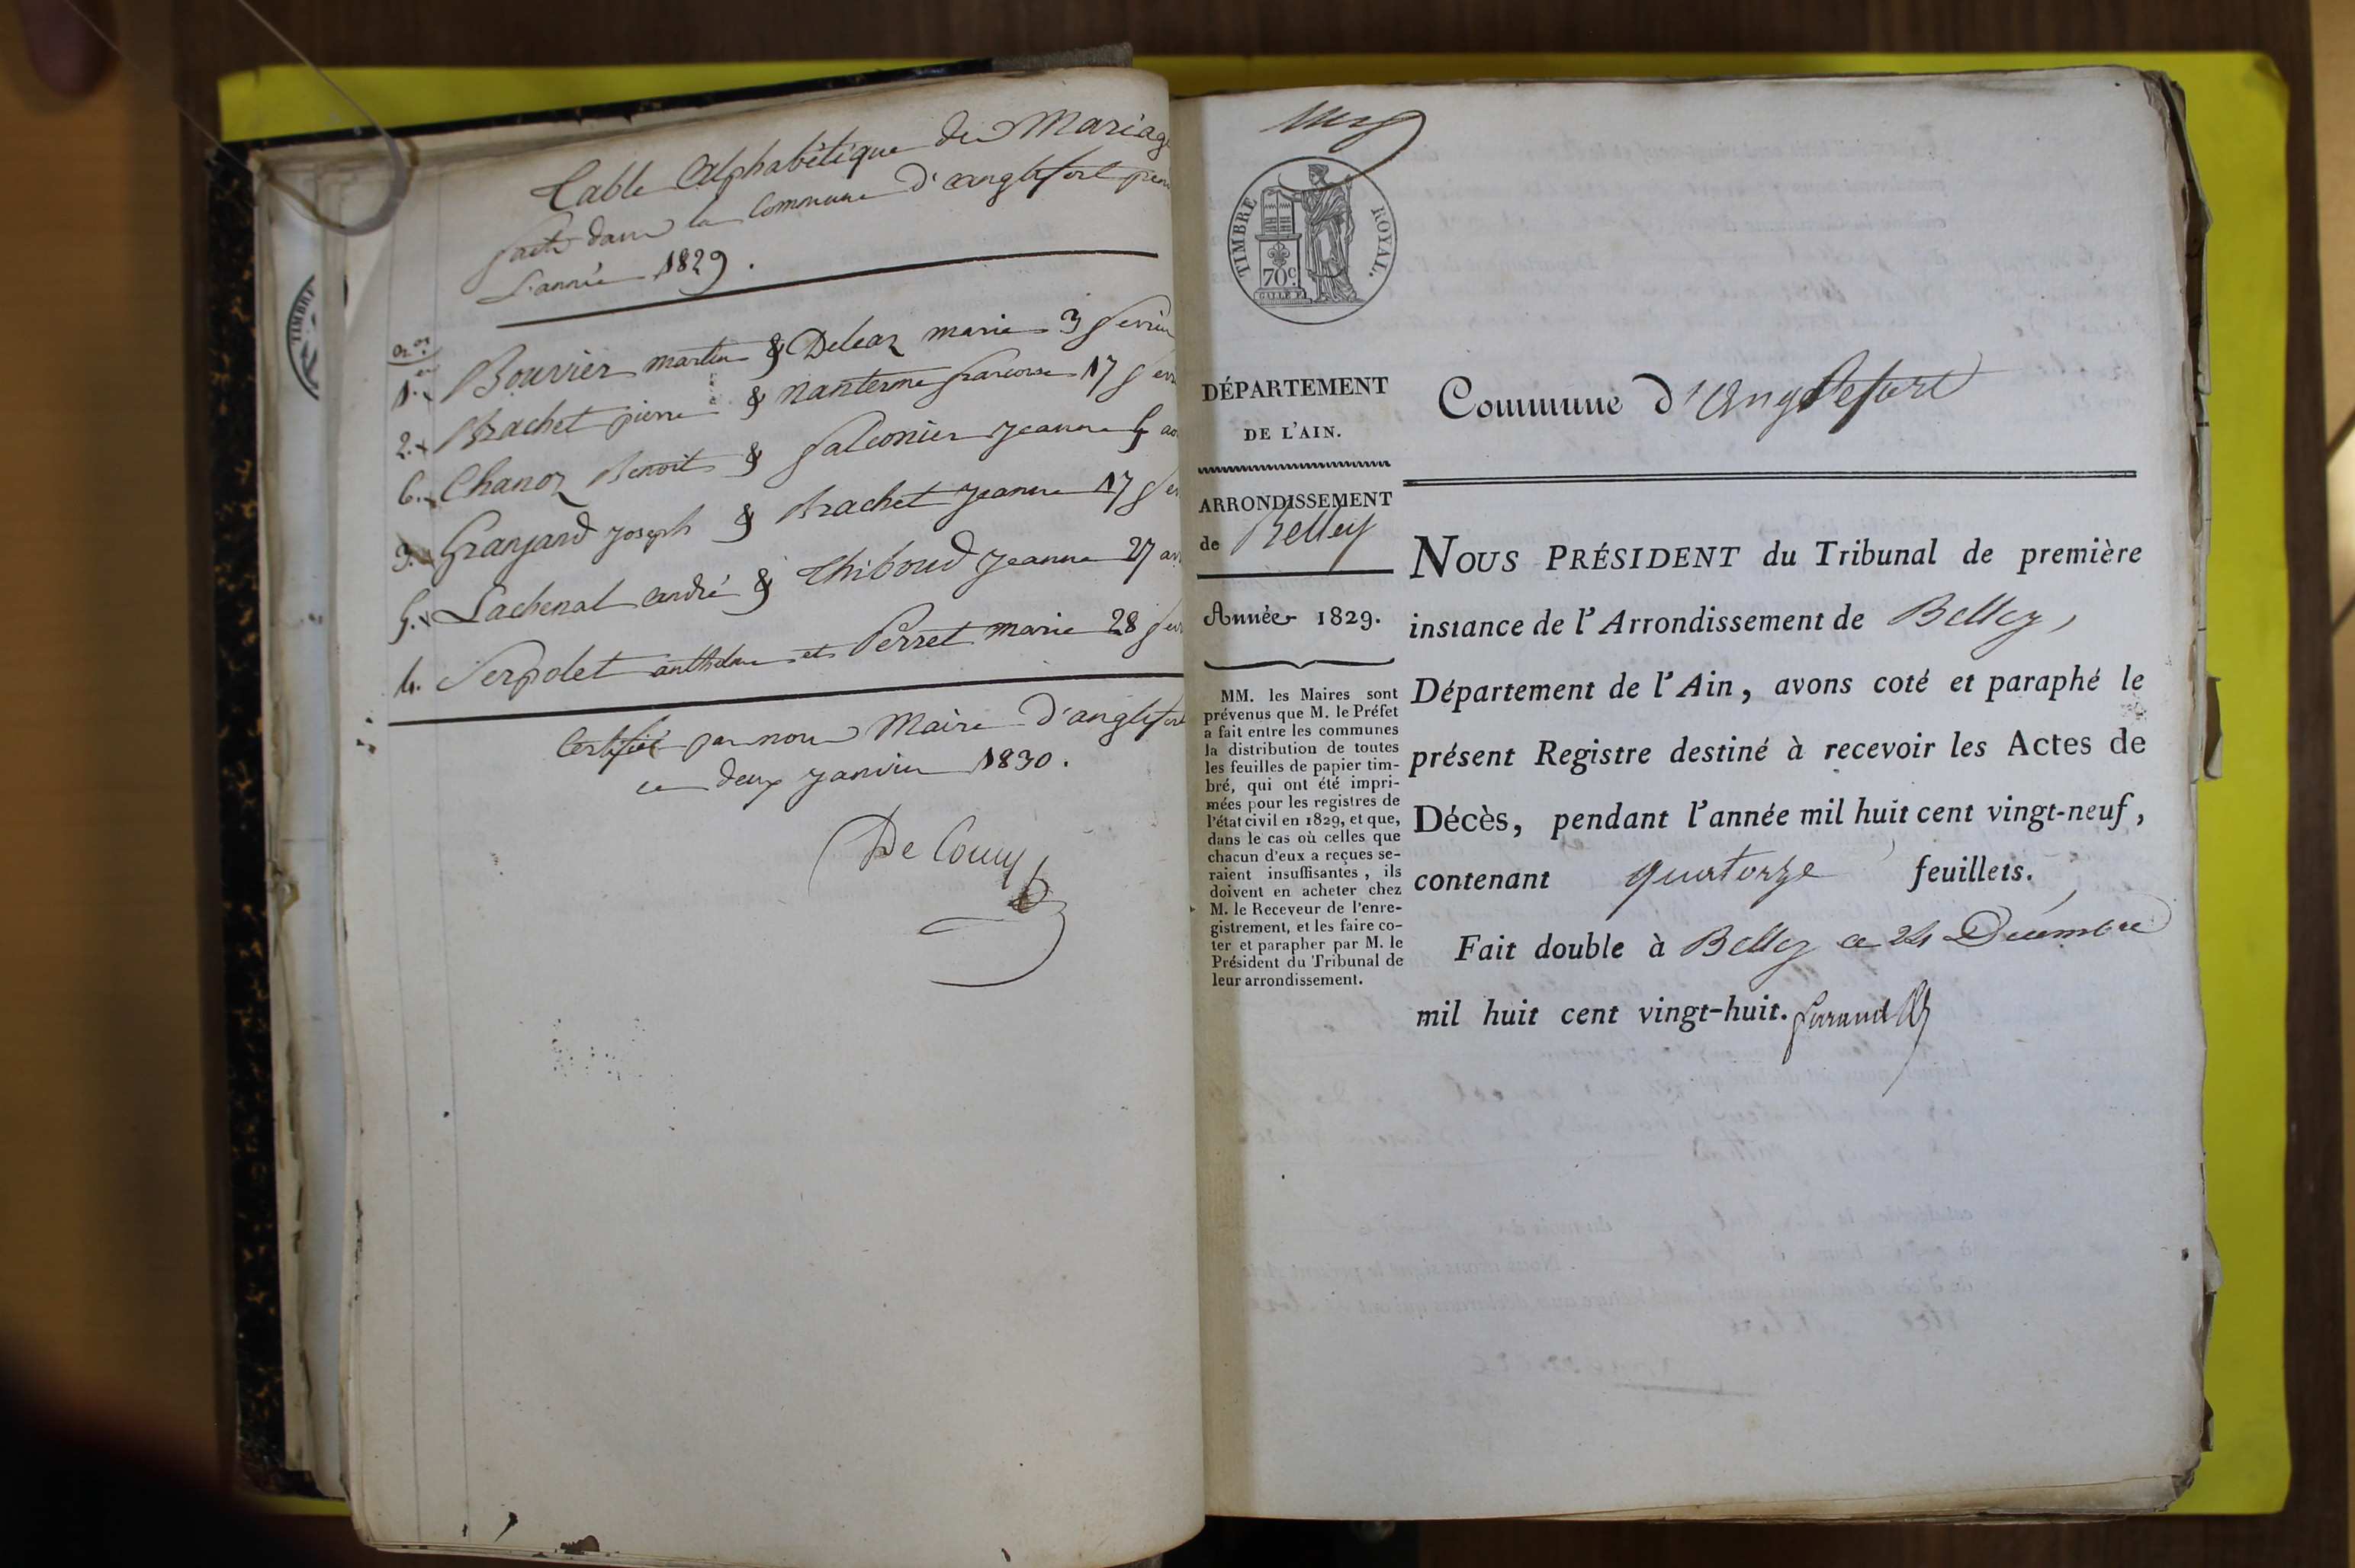 Table Alphabétique des Mariag
faits dans la Commune d'anglefort pen
L'année 1829.
nos
1. Bouvier martin & Deleaz marie 3 fevrier
2. Brachet pierre & nanterme francoise 17 fev
6. Chanoz Benoit & falconier jeanne 5 ao
3. Granjard joseph & Brachet jeanne 17 fev
5. Lachenal andré & Thiboud jeanne 27 av
4. Serpolet anthelme et Perret marie 28 fev
Certifié par nous Maire d'anglefort
ce deux janvier 1830.
TIMBRE
TIMBRE ROYAL.
70c.
DÉPARTEMENT
DE L'AIN.
ARRONDISSEMENT
de Belley
Année 1829.
MM. les Maires sont
prévenus que M. le Préfet
a fait entre les communes
la distribution de toutes
les feuilles de papier tim-
bré, qui ont été impri-
mées pour les registres de
l'état civil en 1829, et que,
dans le cas où celles que
chacun d'eux a reçues se-
raient insuffisantes, ils
doivent en acheter chez
M. le Receveur de l'enre-
gistrement, et les faire co-
ter et parapher par M. le
Président du Tribunal de
leur arrondissement.
Commune d'Anglefort
NOUS PRÉSIDENT du Tribunal de première
instance de l'Arrondissement de Belley,
Département de l'Ain, avons coté et paraphé le
présent Registre destiné à recevoir les Actes de
Décès, pendant l'année mil huit cent vingt-neuf,
contenant quatorze feuillets.
Fait double à Belley ce 24 Décembre
mil huit cent vingt-huit.